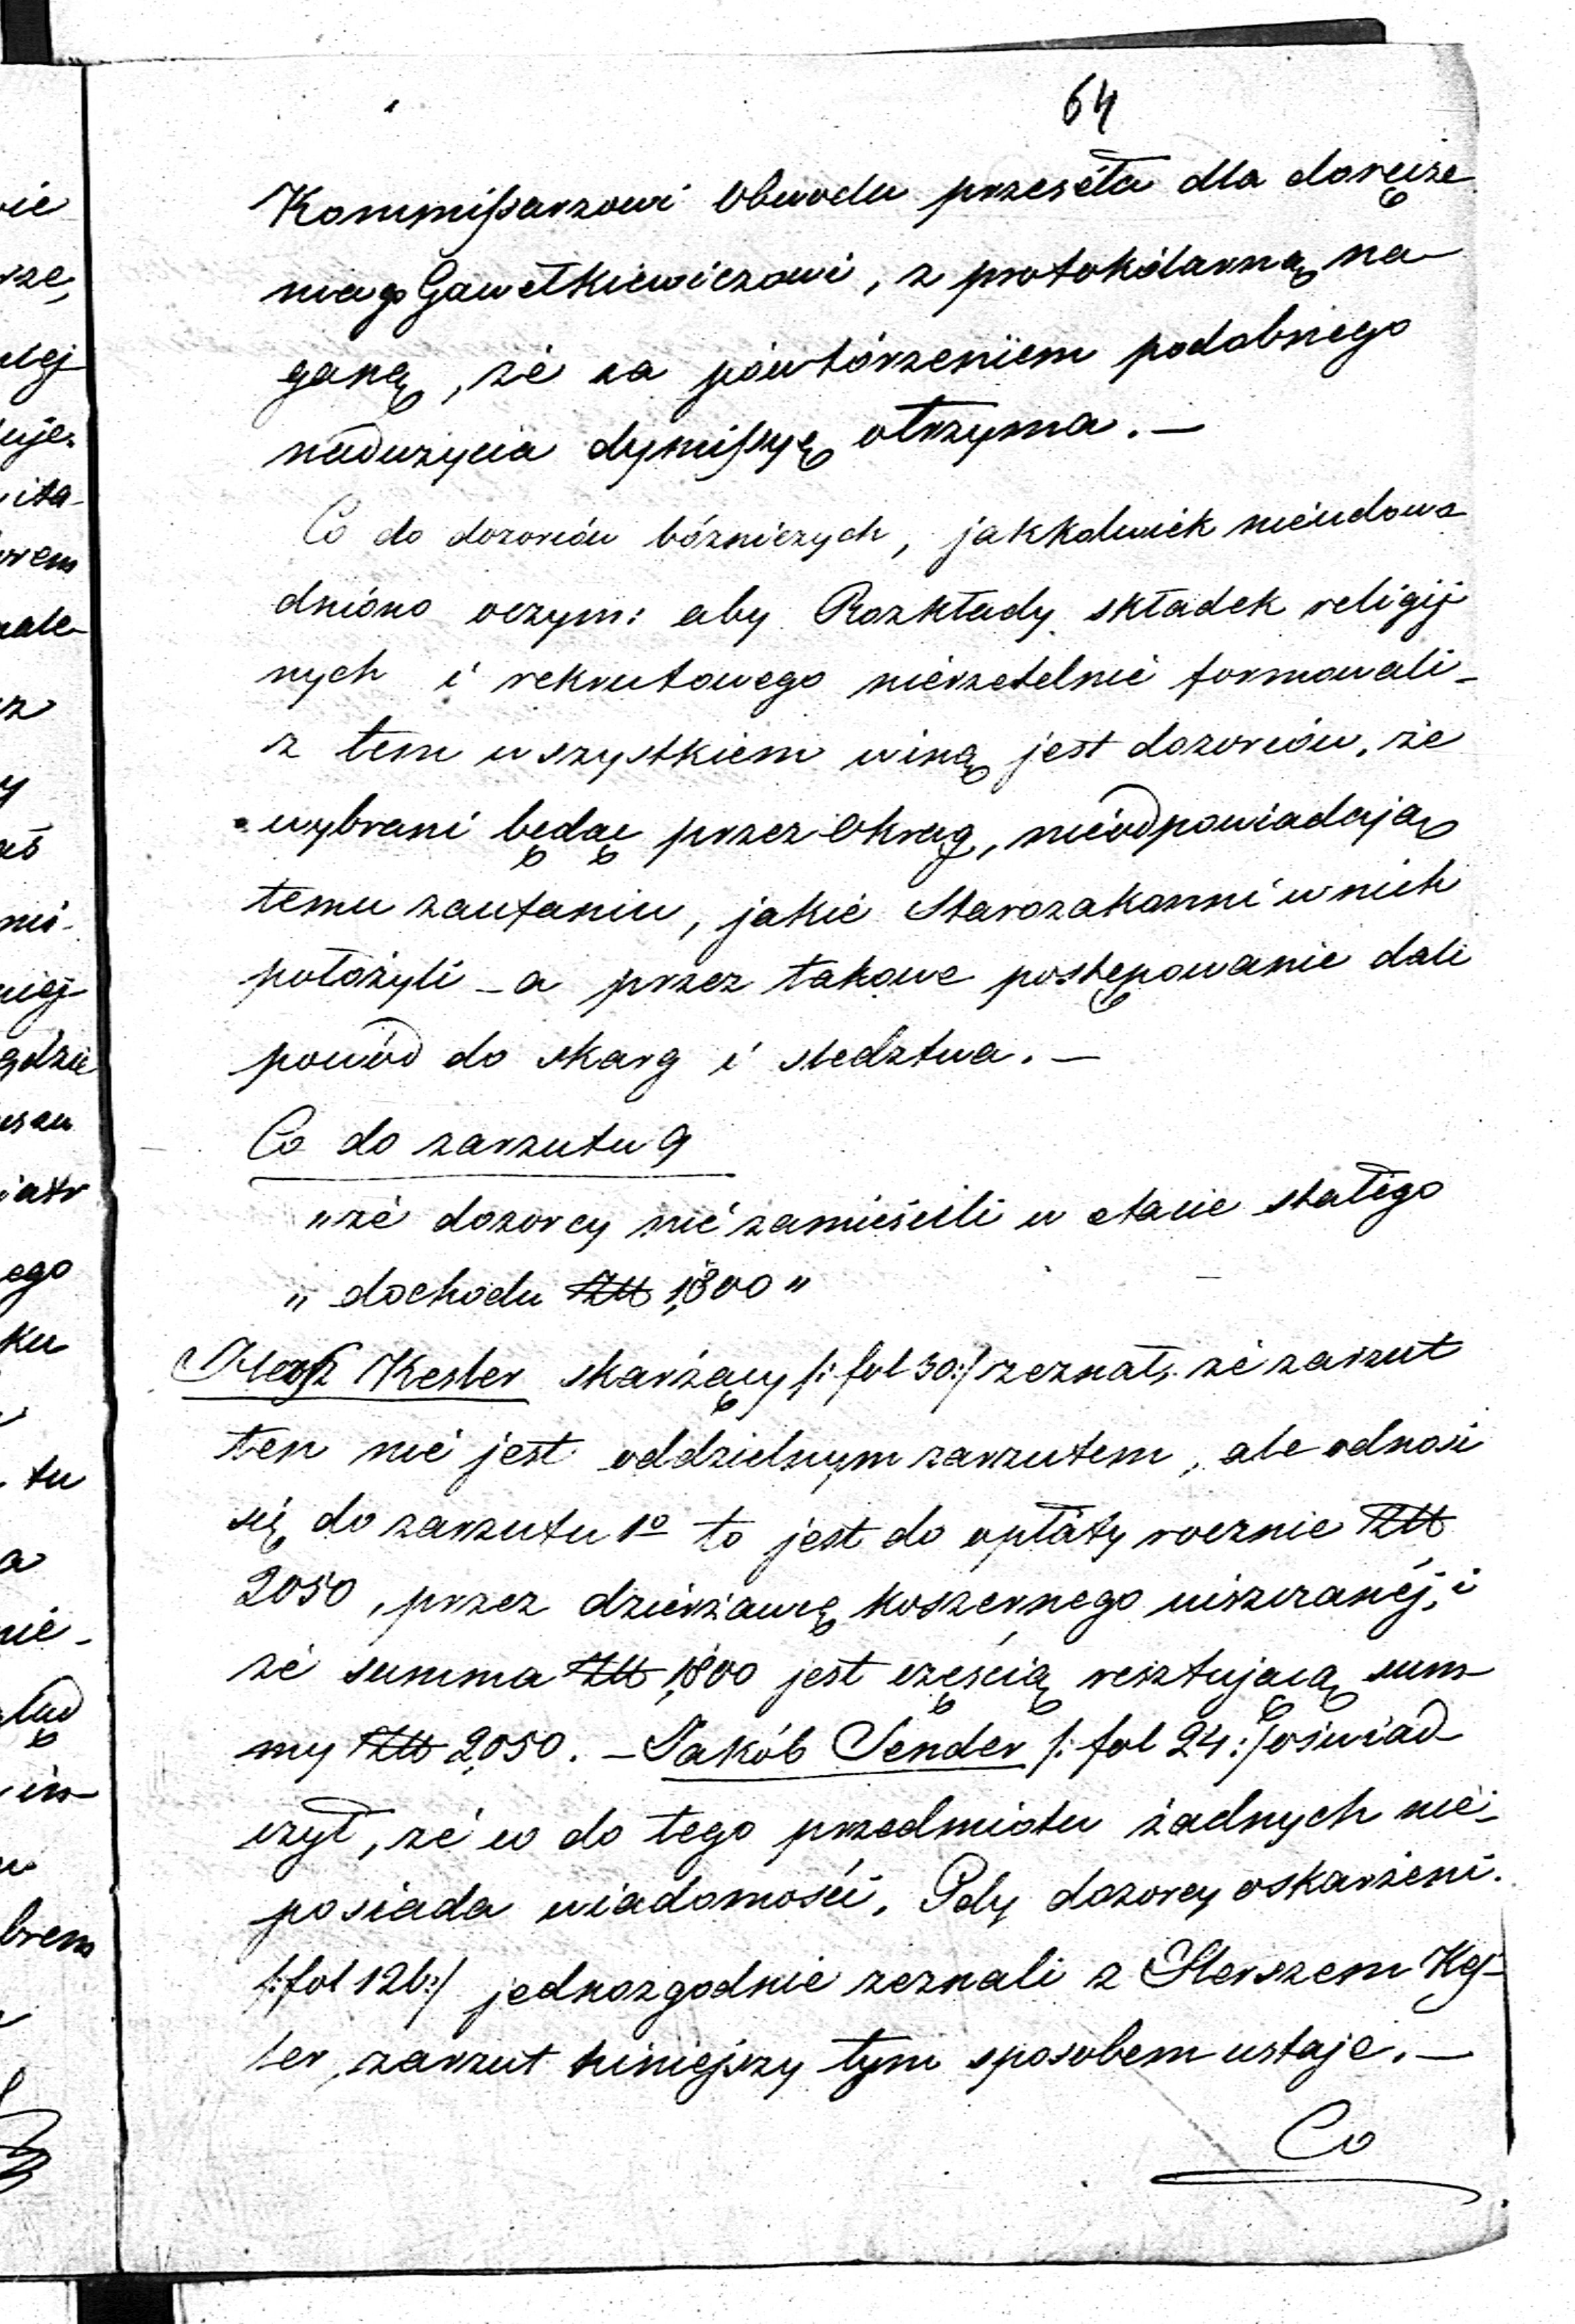 64
Kommissarzowi Obwodu przeséła dla doręcze
nia go Gawełkiewiczowi, z protokólarną na-
ganą, że za powtórzeniem podobnego
nadużycia dymissyę otrzyma. —
Co do dozorców bóżniczych, jakkolwiek nieudowo
dniono oczym: aby Rozkłady składek religij
nych i rekrutowego nierzetelnie formowali -
z tem wszystkiem winą jest dozorców, że
wybrani będąc przez Okrąg, nieodpowiadają
temu zaufaniu, jakie Starozakonni w nich
położyli - a przez takowe postępowanie dali
powód do skarg i sledztwa. —
Co do zarzutu 9
"że dozorcy nie zamieścili w etacie stałego
" dochodu Złt 1,800 "
Hersz Kesler skarżący /: fol 30:/ zeznał, że zarzut
ten nie jest oddzielnym zarzutem, ale odnosi
się do zarzutu 1º to jest do opłaty rocznie Złt
2050, przez dzierżawcę koszernego uiszczanéj, i
że summa Złt 1,800 jest częścią resztującą sum-
my Złt 2,050. - Jakób Sender /: fol 24:/ oświad-
czył, że co do tego przedmiotu żadnych nie-
posiada wiadomości. Gdy dozorcy oskarżeni
/: fol 126:/ jednozgodnie zeznali z Herszem Kes-
ler, zarzut niniejszy tym sposobem ustaje. —
Co